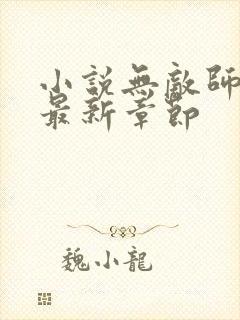 小説無敵師
最新章節
魏小龍